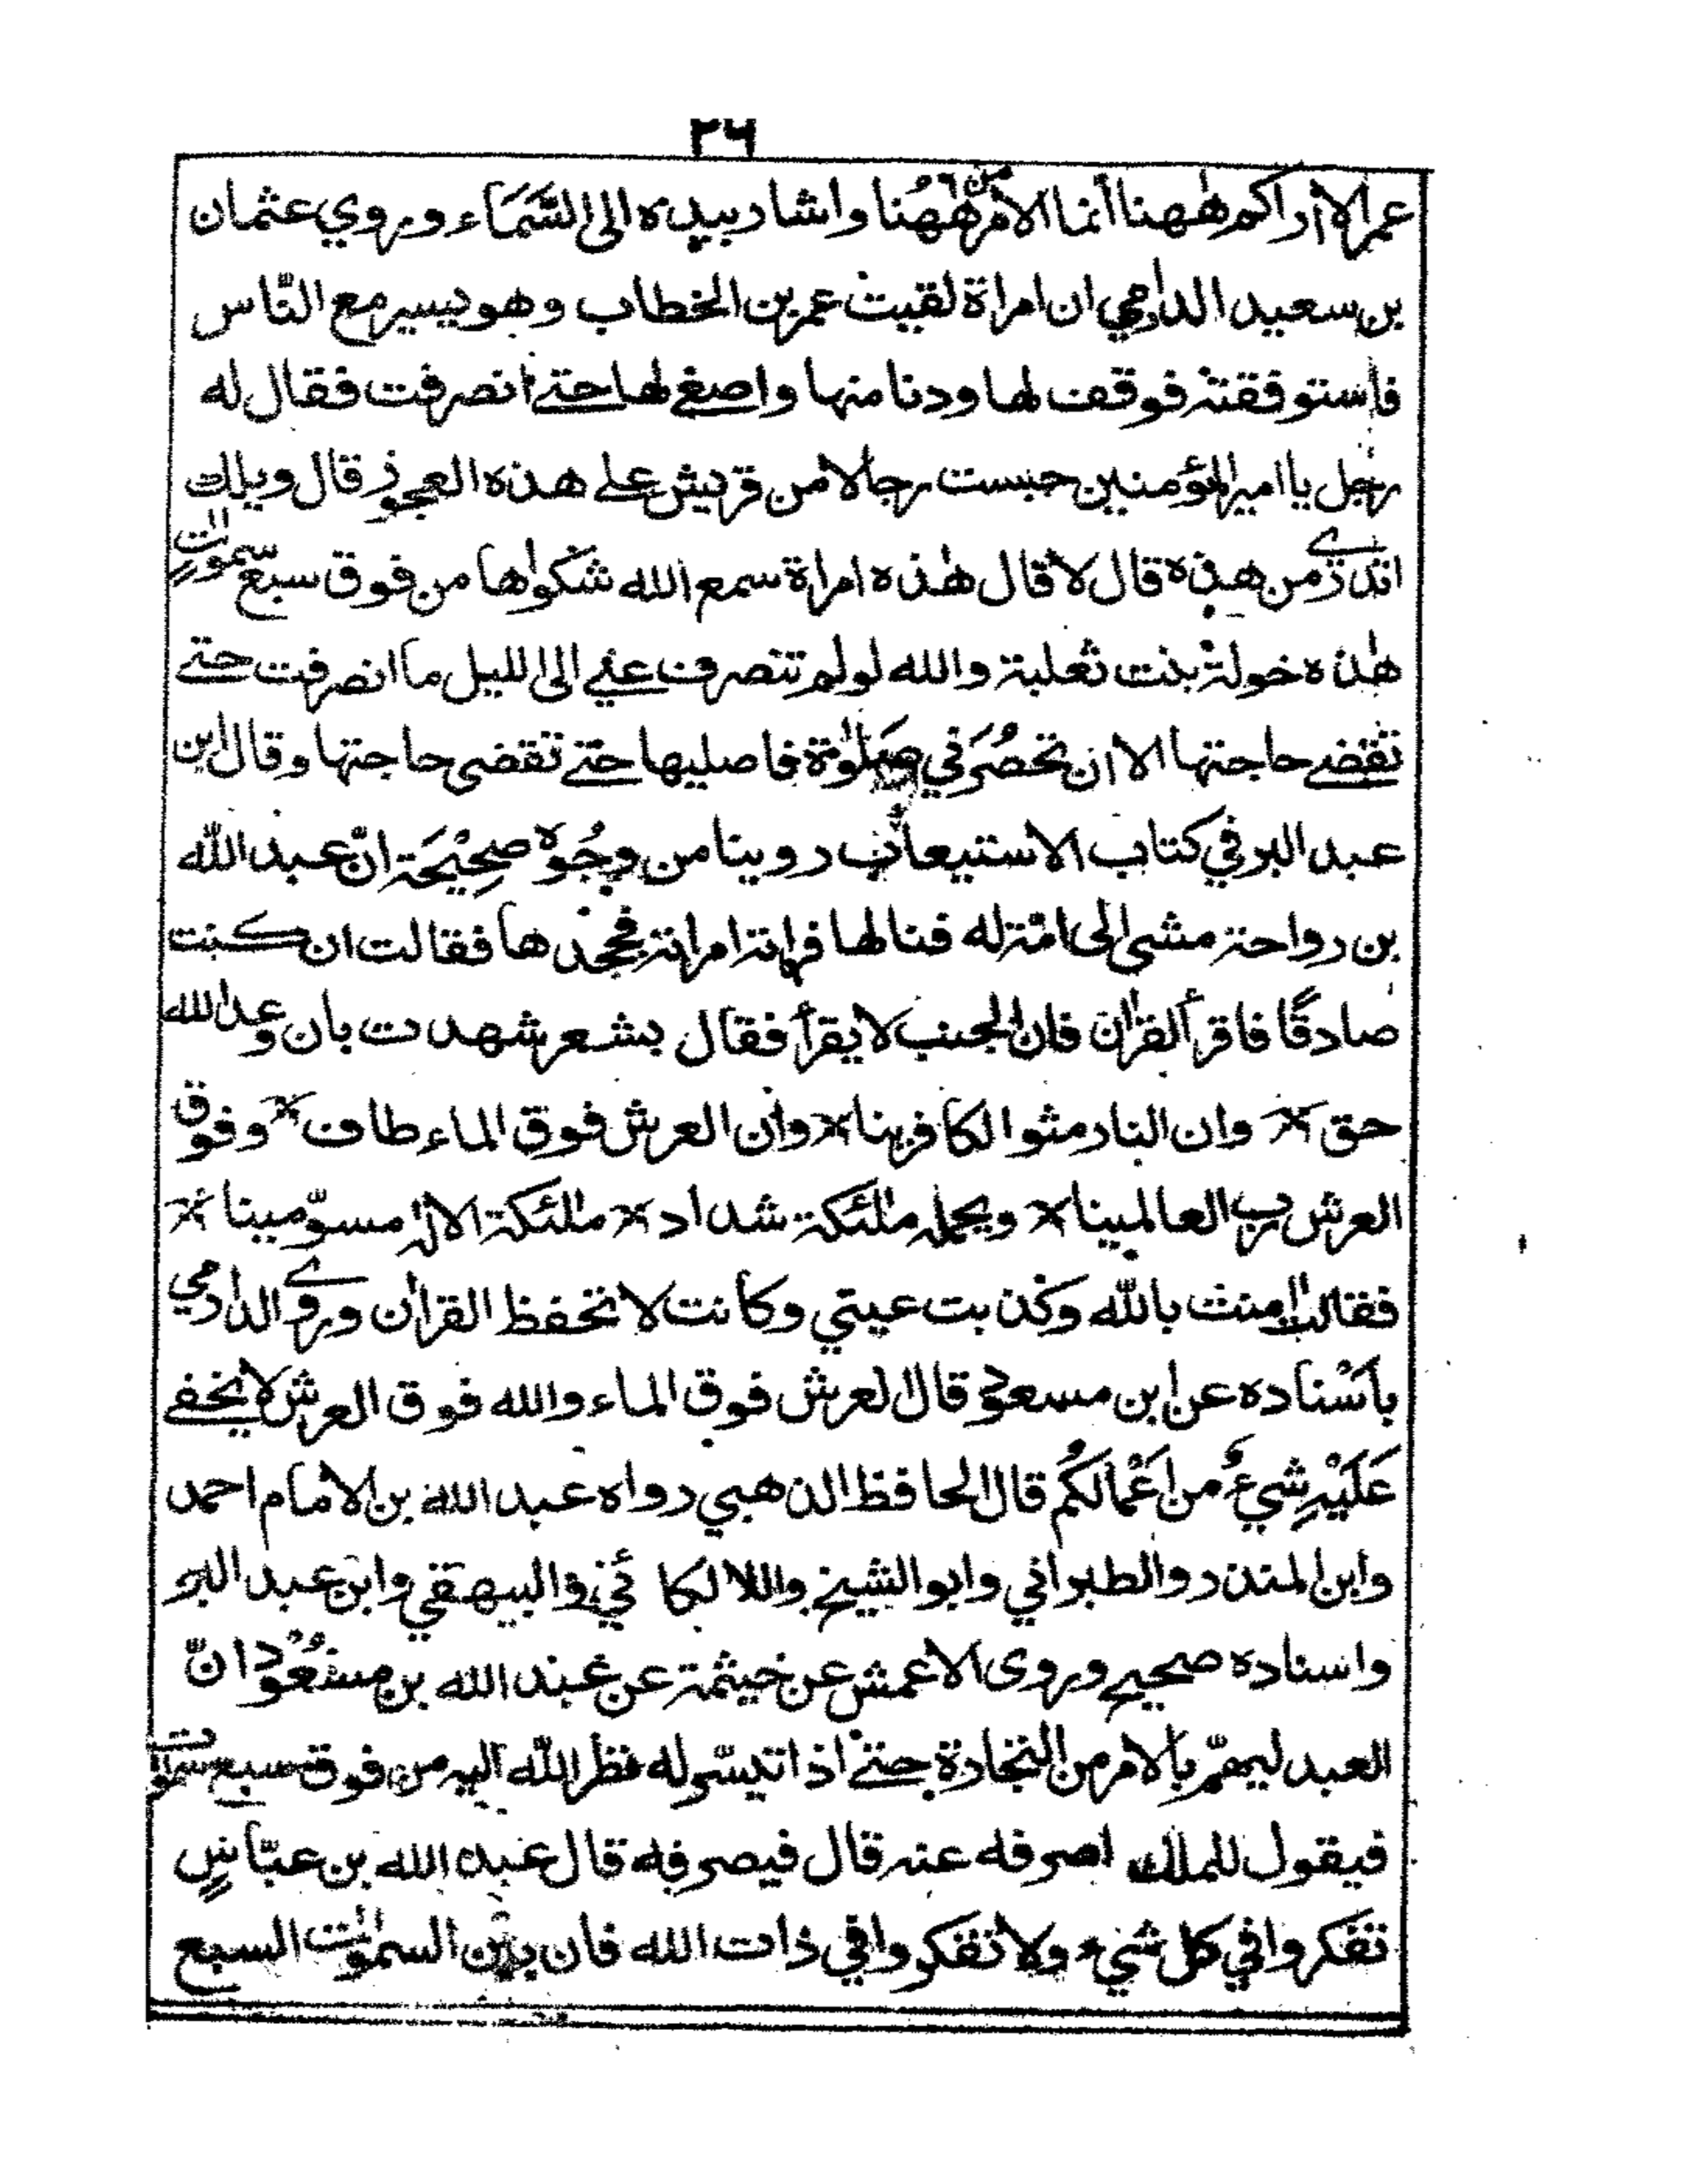 ٢٦
عمر الا أراكم هٰهنا أنما الامر من هٰهُنا واشار بيده الى السَّمَاء وروي عثمان
بن سعيد الدارمي ان امراة لقيت عمر بن الخطاب وهو يسير مع النّاس
فاستوقفته فوقف لها ودنا منها واصغى لها حتى انصرفت فقال له
رجل يا امير المؤمنين حبست رجالا من قريش على هذه العجوز قال ويلك
اتدري من هذه قال لا قال هٰذه امراة سمع الله شكواها من فوق سبع سمٰوٰتٍ
هٰذه خولة بنت ثعلبة والله لو لم تنصرف عني الى الليل ما انصرفت حتى
تقضى حاجتها الا ان تحضُرَني صَلٰوة فاصليها حتى تقضى حاجتها وقال ابن
عبد البر في كتاب الاستيعاب روينا من وجُوه صحِيْحَة انّ عبد الله
بن رواحة مشى الى امة له فنالها فراته امراته فجحدها فقالت ان كنت
صادقًا فاقرأ القرٰان فان الجنب لا يقرأ فقال بشعر شهدت بان وعد الله
حق * وان النار مثوا الكافرينا * وان العرش فوق الماء طاف * وفوق
العرش رب العالمينا * ويحمله ملٰئكة شداد * ملٰئكة الالٰه مسوّمينا *
فقالت اٰمنت بالله وكذبت عيني وكانت لا تحفظ القراٰن وروى الدارمي
باسْناده عن ابن مسعود قال العرش فوق الماء والله فوق العرش لا يخفى
عَلَيْهِ شيءٌ من اَعْمالكُم قال الحافظ الذهبي رواه عبد الله بن الامام احمد
وابن المنذر والطبراني وابو الشيخ واللالكائي والبيهقي وابن عبد البر
واسناده صحيح وروى الاعمش عن خيثمة عن عبد الله بن مسْعُوْد انّ
العبد ليهمّ بالامر من التجارة حتى اذا تيسّر له نظر الله اليه من فوق سبع سمٰوٰت
فيقول للملك اصرفه عنه قال فيصرفه قال عبد الله بن عبّاسٍ
تفكروا في كل شيء ولا تفكروا في ذات الله فان بين السمٰوٰت السبع